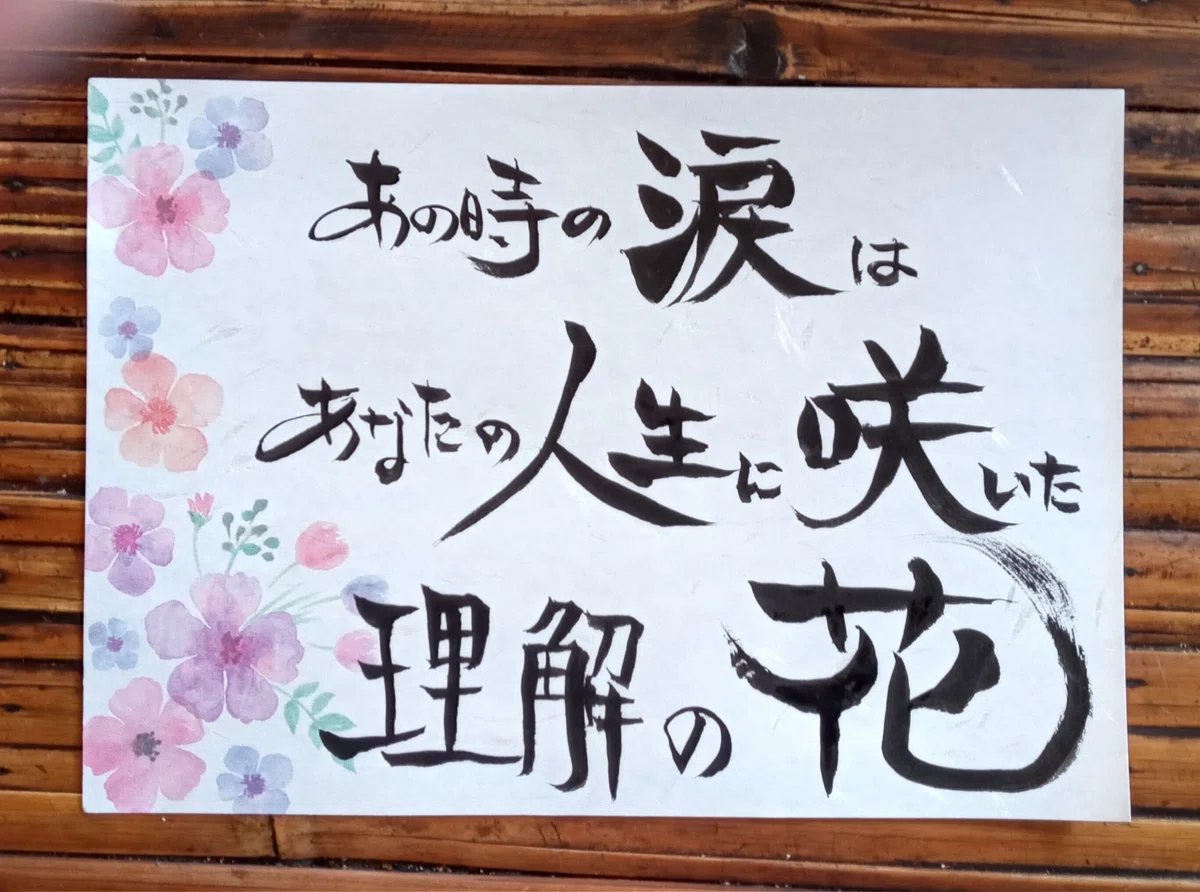 あの時の涙は
あなたの人生に咲いた
理解の花